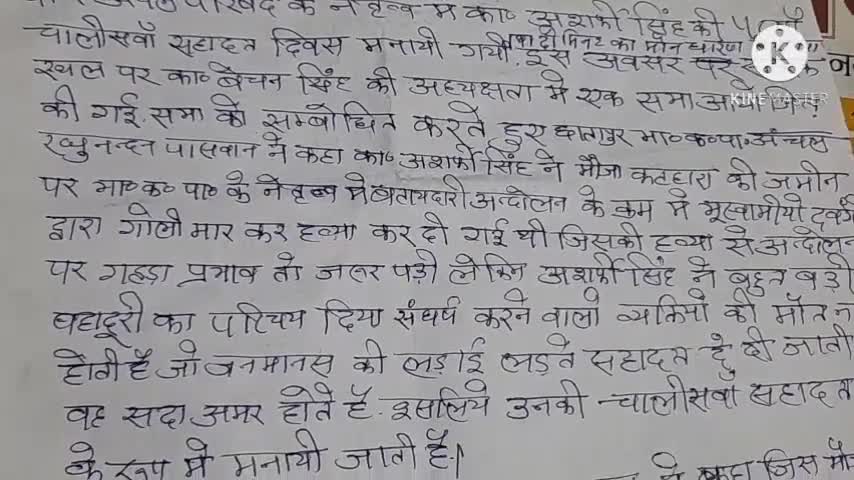 परिषद के नेतृत्व में का० अशर्फी सिंह की
चालीसवाँ सहादत दिवस मनायी गयी दो मिनट का मौन धारण इस अवसर पर
स्थल पर का० बेचन सिंह की अध्यक्षता में एक सभा आयोजित
की गई. सभा को सम्बोधित करते हुए छातापुर भा० क० पा० अंचल
रघुनन्दन पासवान ने कहा का० अशर्फी सिंह ने मौजा कटहारा की जमीन
पर भा० क० पा० के नेतृत्व में बतायदारी आन्दोलन के क्रम में भूस्वामीयो
द्वारा गोली मार कर हत्या कर दी गई थी जिसकी हत्या से अन्दोलन
पर गहड़ा प्रभाव तो जरुर पड़ी लेकिन अशर्फी सिंह ने बहुत बड़ी
बहादूरी का परिचय दिया संघर्ष करने वालो व्यक्तियो की मौत न
होती है जो जनमानस की लड़ाई लड़ते सहादत दे दी जाती
वह सदा अमर होते है. इसलिये उनकी चालीसवाँ सहादत
के रूप में मनायी जाती है।
ने कहा जिस
KINEMASTER